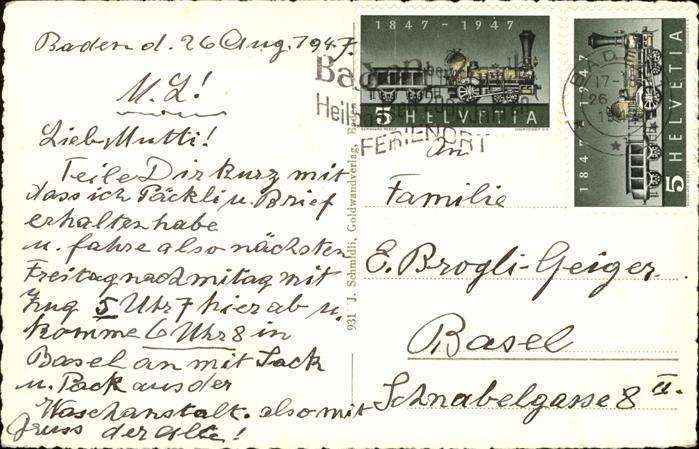 Baden d. 26 Aug. 1947.
M. L!
Lieb Mutti!
Teile Dir kurz mit
dass ich Päckli u. Brief
erhalten habe
u. fahre also nächsten
Freitagnachmitag mit
Zug 5 Uhr 7 hier ab u.
komme 6 Uhr 8 in
Basel an mit Sack
u. Pack aus der
Waschanstalt. also mit
Gruss der Alte!
931 J. Schmidli, Goldwandverlag, Baden
1847 - 1947
5 HELVETIA
1847-1947
5 HELVETIA
Baden
FERIENORT
BADEN
17-
26
An
Familie
E. Brogli-Geiger.
Basel
Schnabelgasse 8 II.